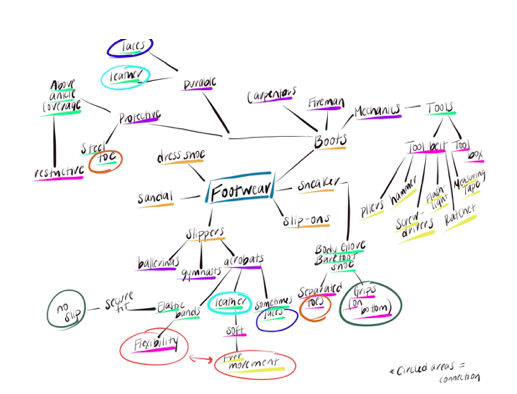 laces
leather
Durable
Above
ankle
coverage
Protective
Steel
toe
restrictive
Carpenters
Fireman
Mechanics
Tools
Boots
Tool belt
Tool
box
pliers
hammer
Screw-
drivers
Flash-
light
Ratchet
Measuring
Tape
dress shoe
sandal
Footwear
sneaker
slip-ons
slippers
ballerinas
gymnasts
acrobats
Body Glove
Barefoot
shoe
Separated
toes
Grips
(on
bottom)
no
slip
secure
fit
Elastic
bands
leather
sometimes
laces
soft
Flexibility
Free
movement
* Circled areas =
connection